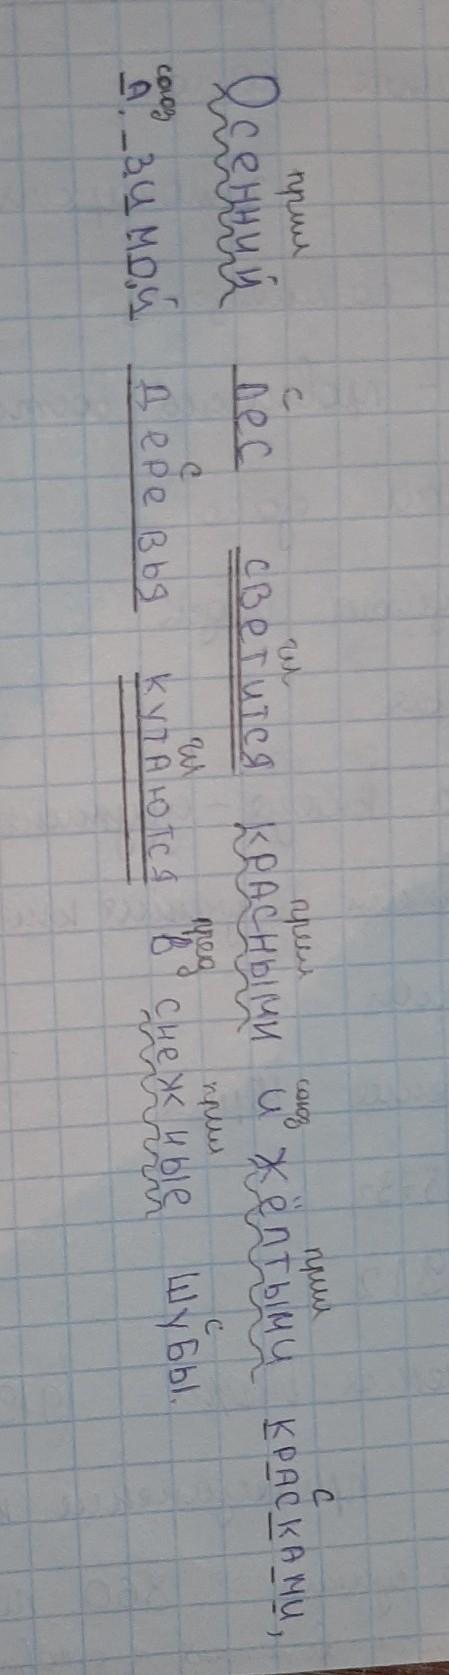 прил с гл прил союз прил с
Осенний лес светится красными и жёлтыми красками,
союз с гл пред прил с
а зимой деревья кутаются в снежные шубы.